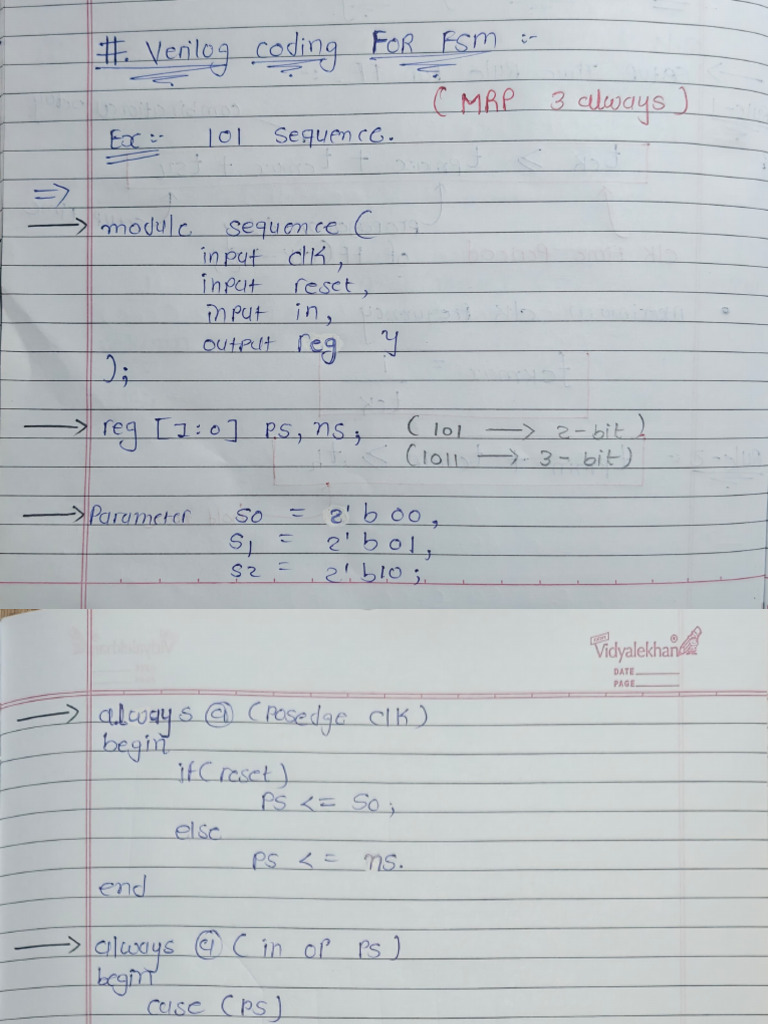 #. Verilog coding FOR FSM :-
( MRP 3 always )
Ex :- 101 sequence.
=>
→ module sequence (
input clk,
input reset,
input in,
output reg y
);
→ reg [1:0] ps, ns; (101 → 2-bit)
(1011 → 3-bit)
→ Parameter s0 = 2'b00,
s1 = 2'b01,
s2 = 2'b10;
Vidyalekhan
DATE
PAGE
→ always @ (posedge clk)
begin
if (reset)
ps <= s0;
else
ps <= ns.
end
→ always @ (in or ps)
begin
case (ps)